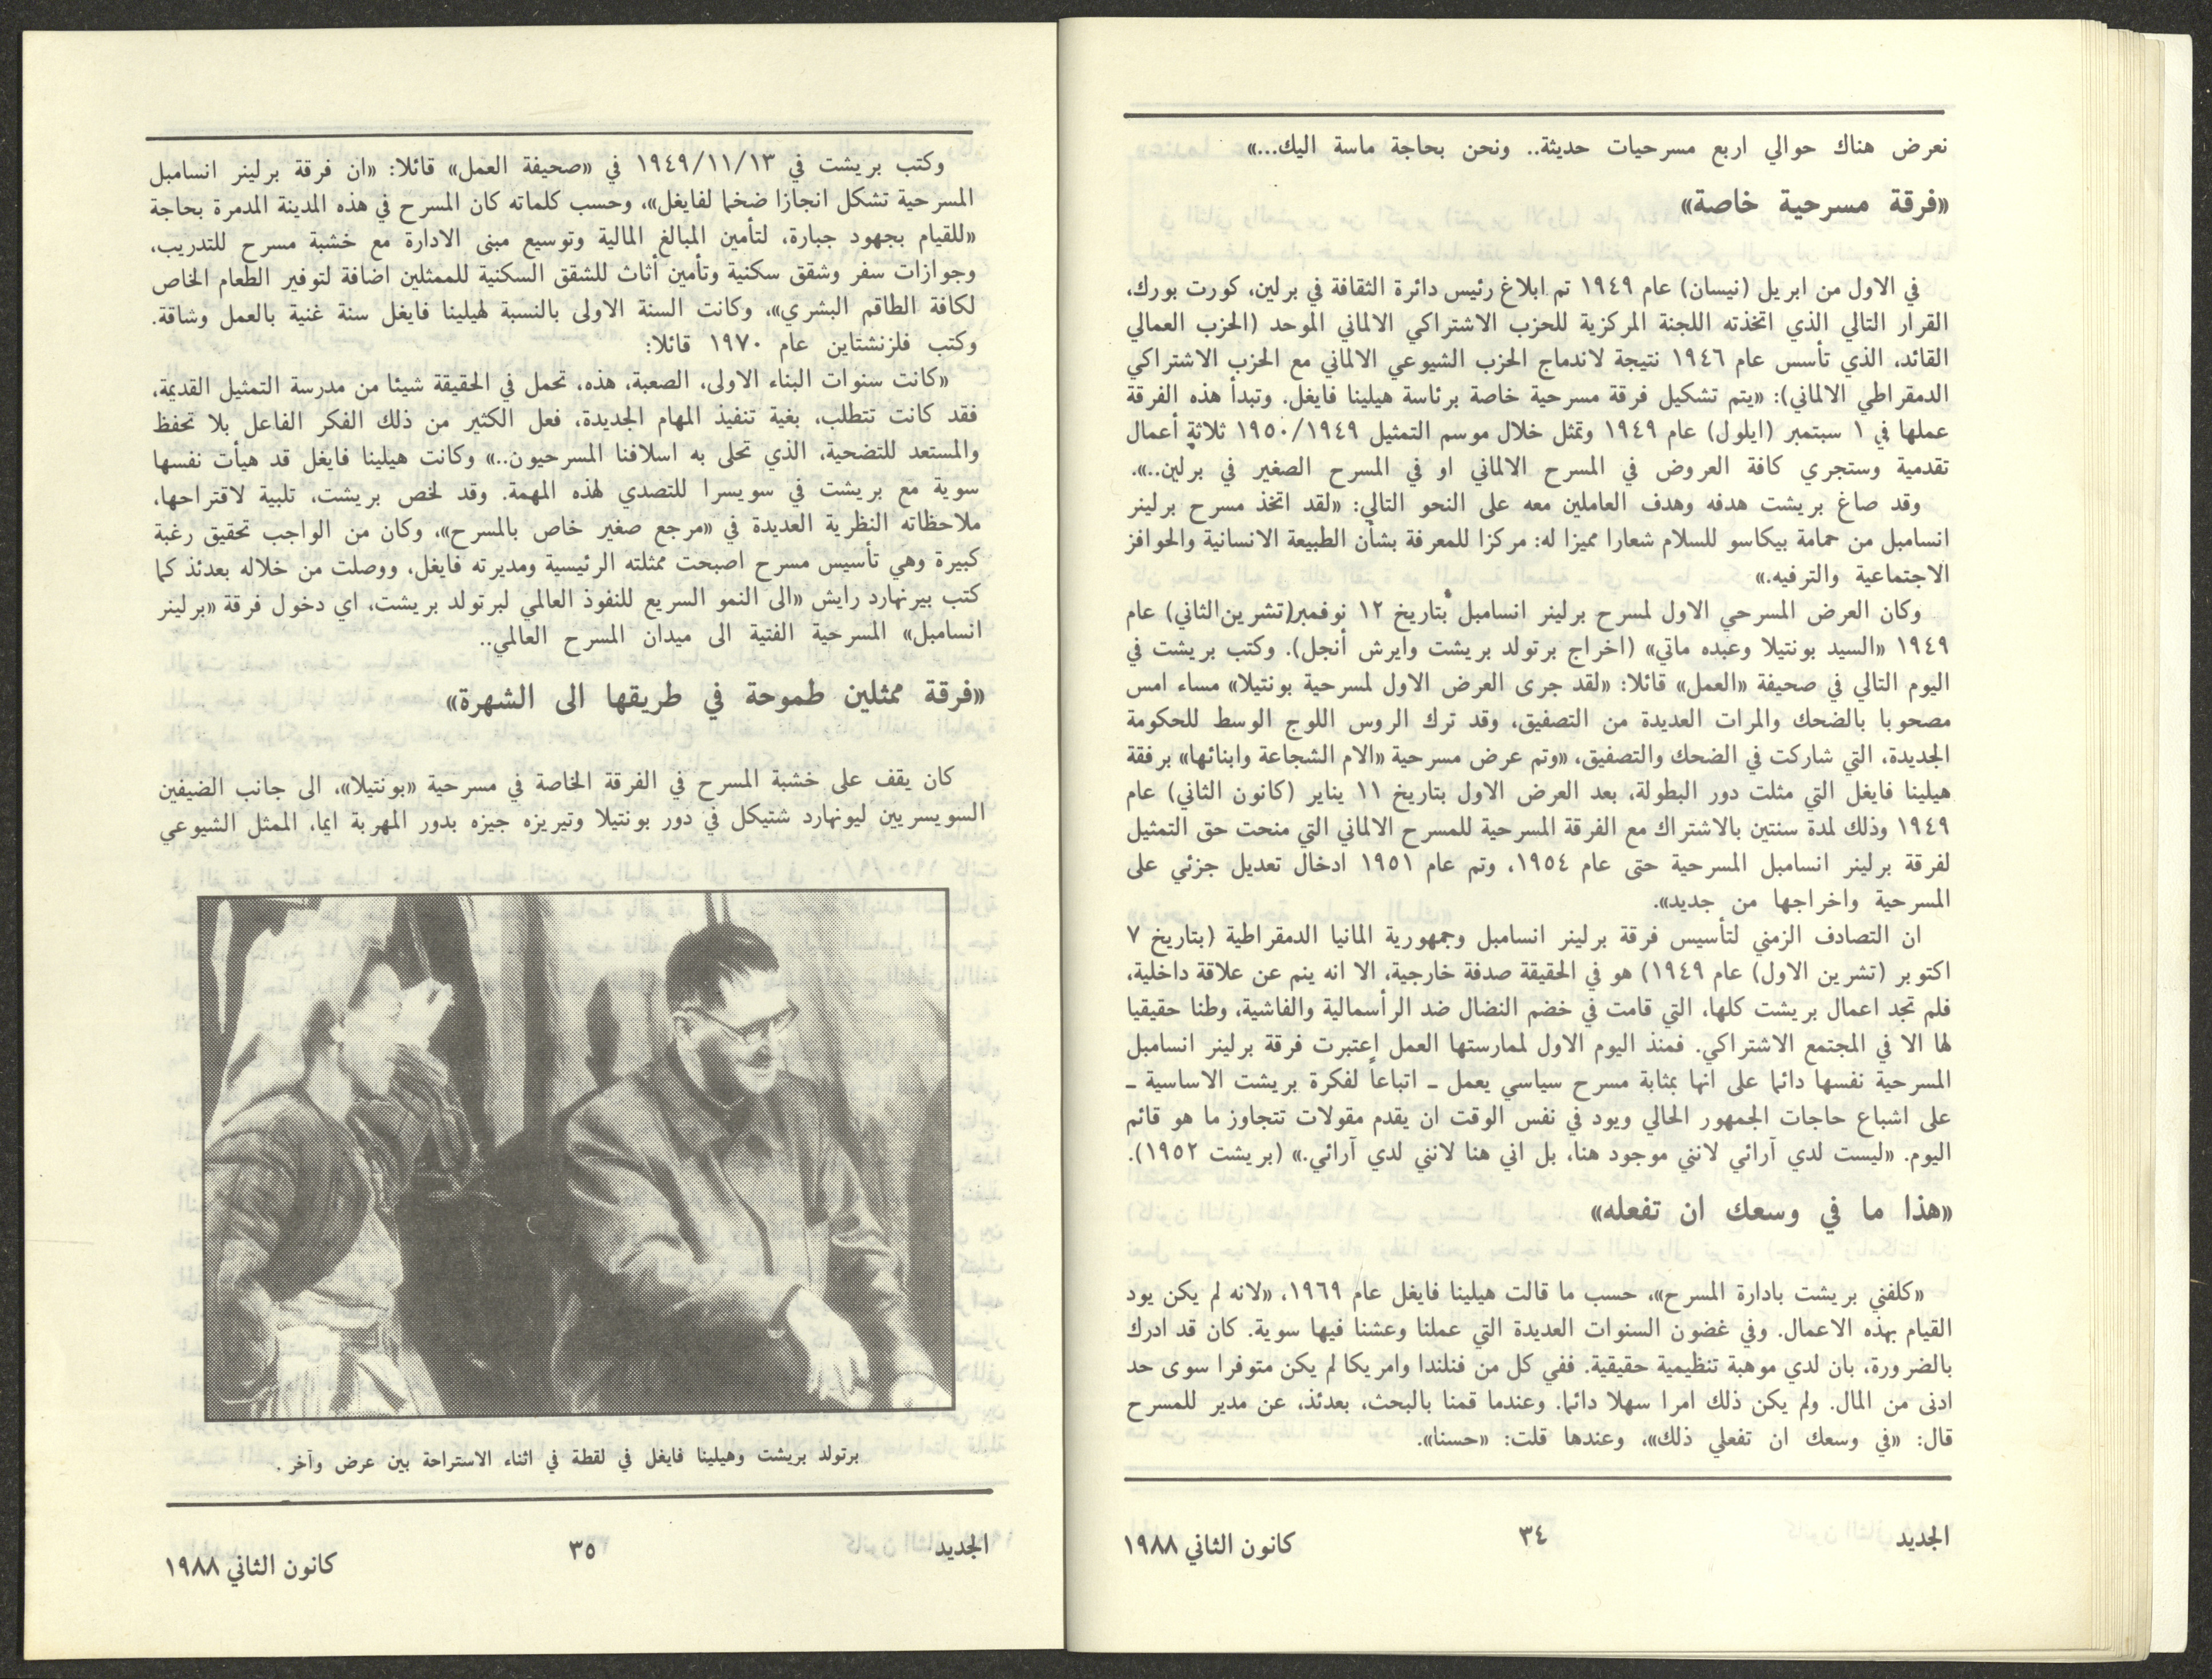 نعرض هناك حوالي اربع مسرحيات حديثة.. ونحن بحاجة ماسة اليك...»
«فرقة مسرحية خاصة»
في الاول من ابريل (نيسان) عام ١٩٤٩ تم ابلاغ رئيس دائرة الثقافة في برلين، كورت بورك،
القرار التالي الذي اتخذته اللجنة المركزية للحزب الاشتراكي الالماني الموحد (الحزب العمالي
القائد، الذي تأسس عام ١٩٤٦ نتيجة لاندماج الحزب الشيوعي الالماني مع الحزب الاشتراكي
الدمقراطي الالماني): «يتم تشكيل فرقة مسرحية خاصة برئاسة هيلينا فايغل. وتبدأ هذه الفرقة
عملها في ١ سبتمبر (ايلول) عام ١٩٤٩ وتمثل خلال موسم التمثيل ١٩٥٠/١٩٤٩ ثلاثة أعمال
تقدمية وستجري كافة العروض في المسرح الالماني او في المسرح الصغير في برلين..».
وقد صاغ بريشت هدفه وهدف العاملين معه على النحو التالي: «لقد اتخذ مسرح برلينر
انسامبل من حمامة بيكاسو للسلام شعارا مميزا له: مركزا للمعرفة بشأن الطبيعة الانسانية والحوافز
الاجتماعية والترفيه.»
وكان العرض المسرحي الاول لمسرح برلينر انسامبل بتاريخ ١٢ نوفمبر(تشرين الثاني) عام
١٩٤٩ «السيد بونتيلا وعبده ماتي» (اخراج برتولد بريشت وايرش أنجل). وكتب بريشت في
اليوم التالي في صحيفة «العمل» قائلا: «لقد جرى العرض الاول لمسرحية بونتيلا» مساء امس
مصحوبا بالضحك والمرات العديدة من التصفيق، وقد ترك الروس اللوج الوسط للحكومة
الجديدة، التي شاركت في الضحك والتصفيق، «وتم عرض مسرحية «الام الشجاعة وابنائها» برفقة
هيلينا فايغل التي مثلت دور البطولة، بعد العرض الاول بتاريخ ١١ يناير (كانون الثاني) عام
١٩٤٩ وذلك لمدة سنتين بالاشتراك مع الفرقة المسرحية للمسرح الالماني التي منحت حق التمثيل
لفرقة برلينر انسامبل المسرحية حتى عام ١٩٥٤، وتم عام ١٩٥١ ادخال تعديل جزئي على
المسرحية واخراجها من جديد».
ان التصادف الزمني لتأسيس فرقة برلينر انسامبل وجمهورية المانيا الدمقراطية (بتاريخ ٧
اكتوبر (تشرين الاول) عام ١٩٤٩) هو في الحقيقة صدفة خارجية، الا انه ينم عن علاقة داخلية،
فلم تجد اعمال بريشت كلها، التي قامت في خضم النضال ضد الرأسمالية والفاشية، وطنا حقيقيا
لها الا في المجتمع الاشتراكي. فمنذ اليوم الاول لممارستها العمل اعتبرت فرقة برلينر انسامبل
المسرحية نفسها دائما على انها بمثابة مسرح سياسي يعمل ـ اتباعاً لفكرة بريشت الاساسية ـ
على اشباع حاجات الجمهور الحالي ويود في نفس الوقت ان يقدم مقولات تتجاوز ما هو قائم
اليوم. «ليست لدي آرائي لانني موجود هنا، بل اني هنا لانني لدي آرائي.» (بريشت ١٩٥٢).
«هذا ما في وسعك ان تفعله»
«كلفني بريشت بادارة المسرح»، حسب ما قالت هيلينا فايغل عام ١٩٦٩، «لانه لم يكن يود
القيام بهذه الاعمال. وفي غضون السنوات العديدة التي عملنا وعشنا فيها سوية. كان قد ادرك
بالضرورة، بان لدي موهبة تنظيمية حقيقية. ففي كل من فنلندا وامريكا لم يكن متوفرا سوى حد
ادنى من المال. ولم يكن ذلك امرا سهلا دائما. وعندما قمنا بالبحث، بعدئذ، عن مدير للمسرح
قال: «في وسعك ان تفعلي ذلك»، وعندها قلت: «حسنا».
الجديد
٣٤
كانون الثاني ١٩٨٨
وكتب بريشت في ١٩٤٩/١١/١٣ في «صحيفة العمل» قائلا: «ان فرقة برلينر انسامبل
المسرحية تشكل انجازا ضخما لفايغل»، وحسب كلماته كان المسرح في هذه المدينة المدمرة بحاجة
«للقيام بجهود جبارة، لتأمين المبالغ المالية وتوسيع مبنى الادارة مع خشبة مسرح للتدريب،
وجوازات سفر وشقق سكنية وتأمين أثاث للشقق السكنية للممثلين اضافة لتوفير الطعام الخاص
لكافة الطاقم البشري»، وكانت السنة الاولى بالنسبة لهيلينا فايغل سنة غنية بالعمل وشاقة.
وكتب فلزنشتاين عام ١٩٧٠ قائلا:
«كانت سنوات البناء الاولى، الصعبة، هذه، تحمل في الحقيقة شيئا من مدرسة التمثيل القديمة،
فقد كانت تتطلب، بغية تنفيذ المهام الجديدة، فعل الكثير من ذلك الفكر الفاعل بلا تحفظ
والمستعد للتضحية، الذي تحلى به اسلافنا المسرحيون..» وكانت هيلينا فايغل قد هيأت نفسها
سوية مع بريشت في سويسرا للتصدي لهذه المهمة. وقد لخص بريشت، تلبية لاقتراحها،
ملاحظاته النظرية العديدة في «مرجع صغير خاص بالمسرح»، وكان من الواجب تحقيق رغبة
كبيرة وهي تأسيس مسرح اصبحت ممثلته الرئيسية ومديرته فايغل، ووصلت من خلاله بعدئذ كما
كتب بيرنهارد رايش «الى النمو السريع للنفوذ العالمي لبرتولد بريشت، اي دخول فرقة «برلينر
انسامبل» المسرحية الفتية الى ميدان المسرح العالمي..
«فرقة ممثلين طموحة في طريقها الى الشهرة»
كان يقف على خشبة المسرح في الفرقة الخاصة في مسرحية «بونتيلا»، الى جانب الضيفين
السويسريين ليونهارد شتيكل في دور بونتيلا وتيريزه جيزه بدور المهربة ايما، الممثل الشيوعي
برتولد بريشت وهيلينا فايغل في لقطة في اثناء الاستراحة بين عرض وآخر.
الجديد
٣٥
كانون الثاني ١٩٨٨